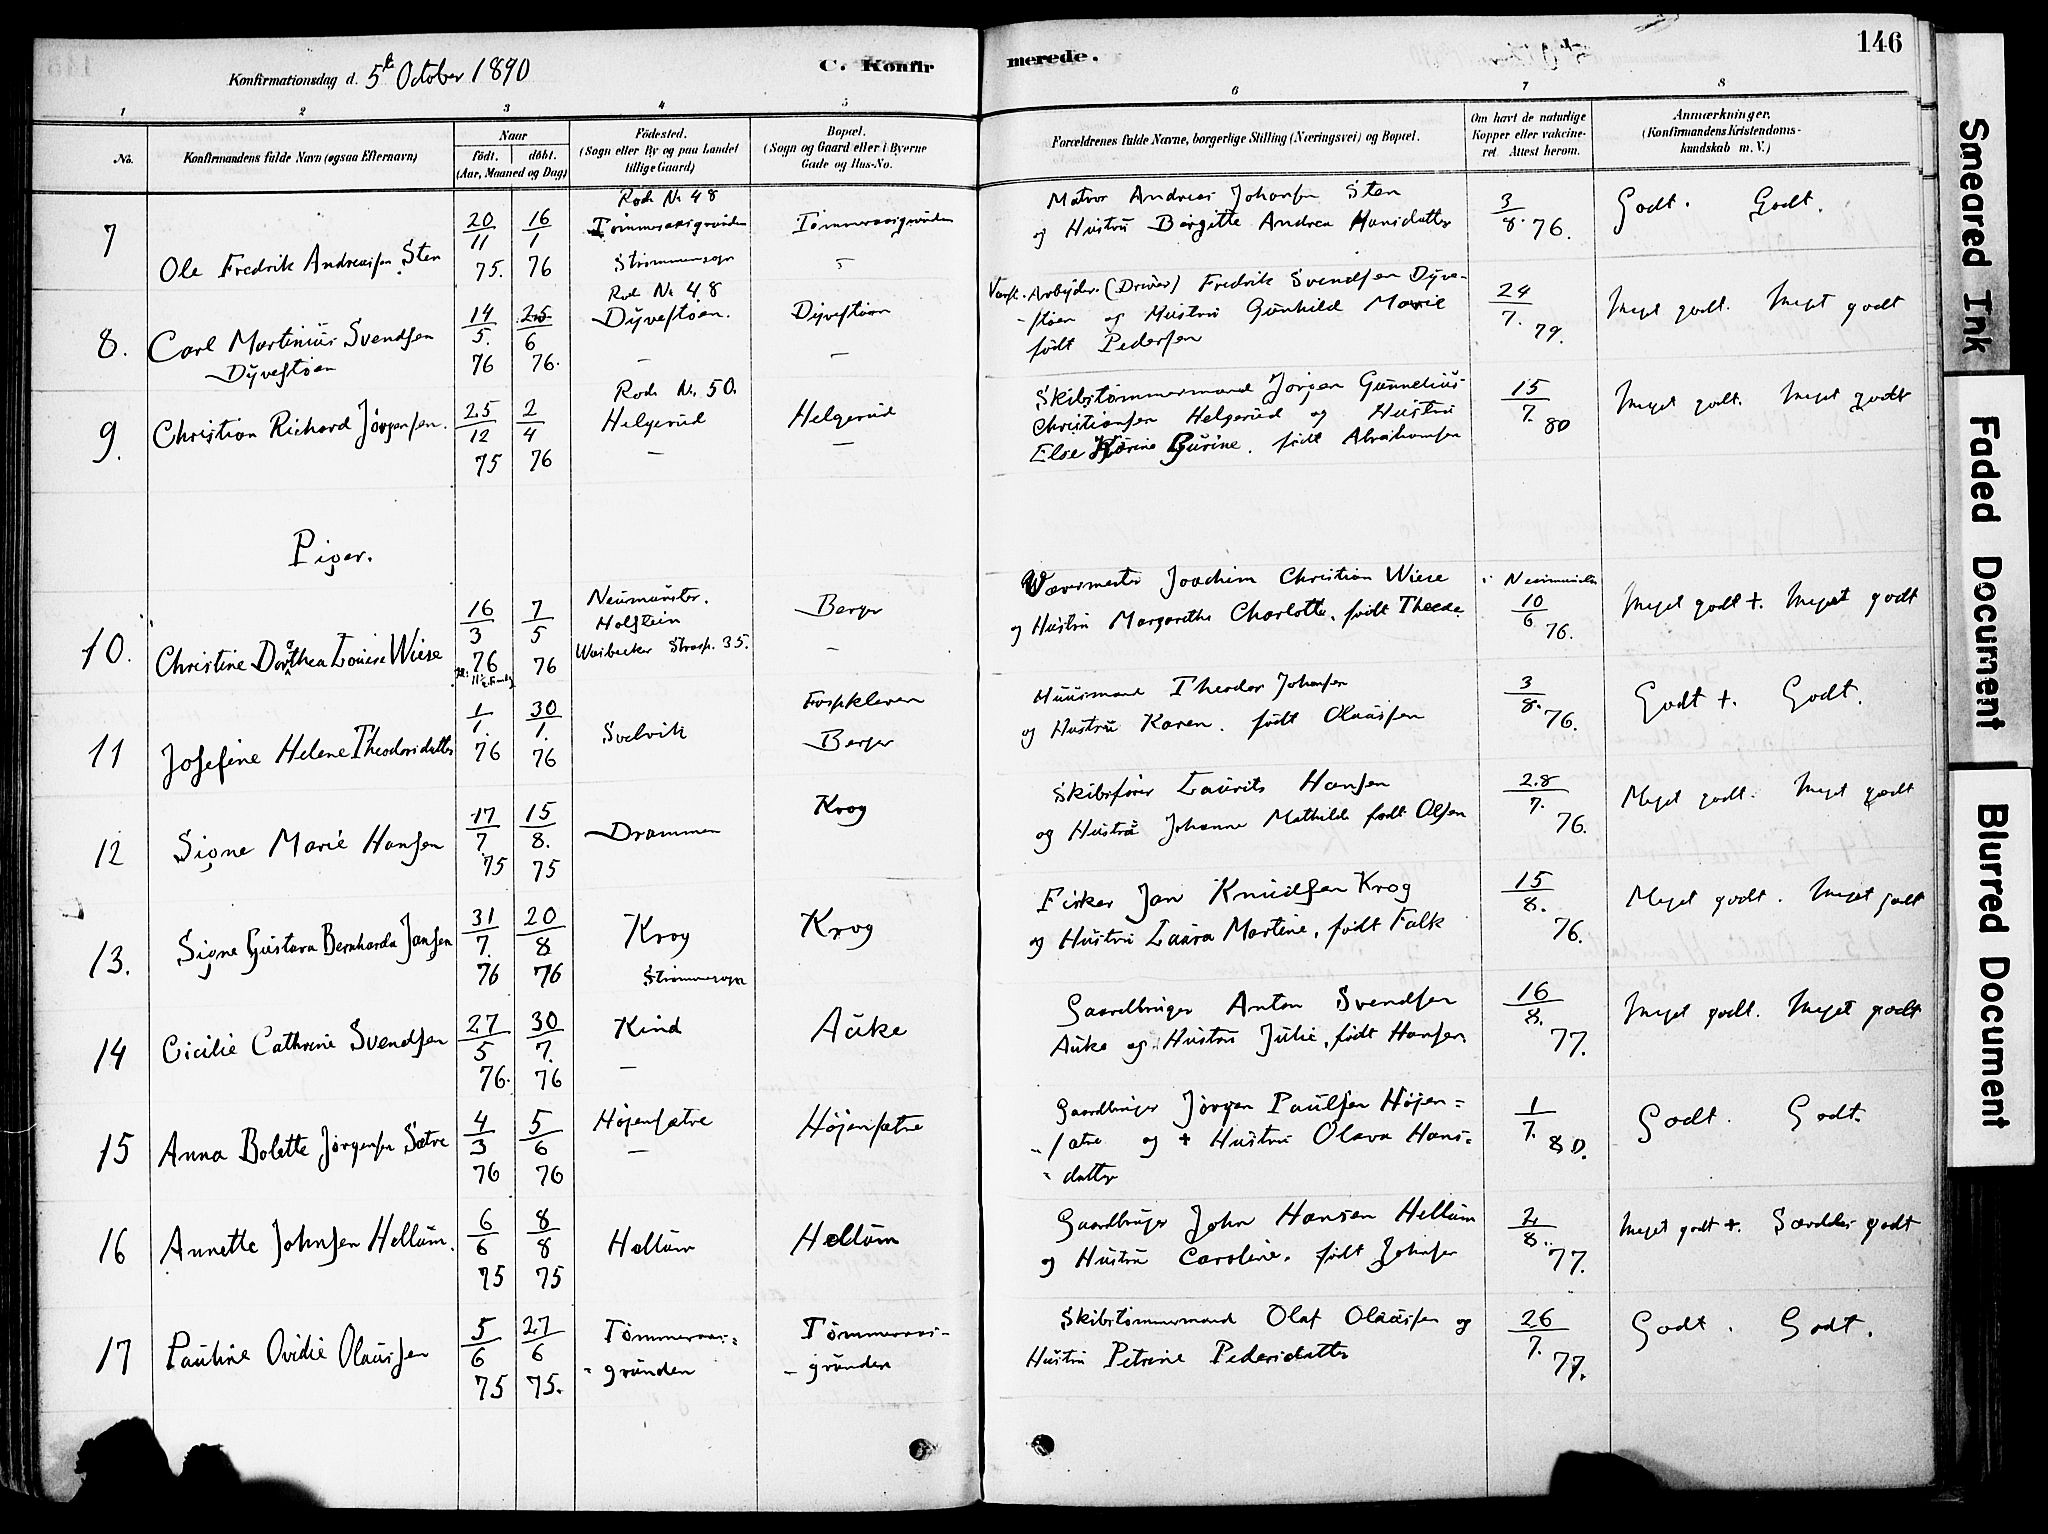 146
Konfirmationsdag d. 5te October 1890
C. Konfirmerede.
1 2 3 4 5 6 7 8
No.
Konfirmandens fulde Navn (ogsaa Efternavn)
Naar
födt. döbt.
(Aar, Maaned og Dag)
Födested.
(Sogn eller By og paa Landet
tillige Gaard)
Bopæl.
(Sogn og Gaard eller i Byerne
Gade og Hus-No.
Forældrenes fulde Navne, borgerlige Stilling (Næringsvei) og Bopæl.
Om havt de naturlige
Kopper eller vaccine-
ret. Attest herom.
Anmærkninger.
(Konfirmandens Kristendoms-
kundskab m. V.)
7
Ole Fredrik Andreassen Sten
20/11 75. 16/1 76
Rode No 48
Tømmeraasgrunden
Strømmsogn
Tømmeraasgrunden
Matros Andreas Johansen Sten
og Hustru Birgitte Andrea Hansdatter
3/8. 76.
Godt. Godt.
8.
Carl Martinius Svendsen
Dyvestøen
14/5. 76 25/6 76.
Rode No 48
Dyvestøen.
Dyvestøen
Arbeider. (Driver) Fredrik Svendsen Dyve-
-støen og Hustru Gunhild Marie
født Pedersen
24/7. 79.
Meget godt. Meget godt
9.
Christian Richard Jørgensen.
25/12 75 2/4 76
Rode No. 50.
Helgerud
Helgerud
Skibstømmermand Jørgen Gunnelius
Christiansen Helgerud og Hustru
Else Karine Gurine. født Abrahamsen
15/7. 80
Meget godt. Meget godt
Piger.
10.
Christine Dorothea Louise Wiese
16/3 76 7/5 76
Neumünster.
Holstein
Wasbecker Strasse. 35.
Berger
Væversmester Joachim Christian Wiese
og Hustru Margarethe Charlotte, født Theede
i Neumünster
10/6 76.
Meget godt +. Meget godt
11
Josefine Helene Theodorsdatter
1/1. 76 30/1. 76
Svelvik
Fossekleven
Berger
Huusmand Theodor Johansen
og Hustru Karen. født Olaussen
3/8. 76.
Godt +. Godt.
12
Signe Marie Hansen
17/7 75 15/8. 75
Drammen
Krog
Skibsfører Laurits Hansen
og Hustru Johanne Mathilde født Olsen
28/7. 76.
Meget godt. Meget godt
13.
Signe Gustava Bernharda Jansen
31/7. 76 20/8 76
Krog
Strømmsogn
Krog
Fisker Jan Knudsen Krog
og Hustru Laura Martine, født Falk
15/8. 76.
Meget godt. Meget godt
14
Cicilie Cathrine Svendsen
27/5 76. 30/7. 76
Kind
Auke
Gaardbruger Anton Svendsen
Auke og Hustru Julie, født Hansen.
16/8. 77.
Meget godt. Meget godt
15
Anna Bolette Jørgensen Sætre
4/3 76 5/6 76
Højensætre
Højensætre
Gaardbruger Jørgen Paulsen Højen=
sætre og + Hustru Olava Hans=
datter
1/7. 80.
Godt. Godt.
16
Annette Johnsen Hellum.
6/6 75 8/8 75
Hellum
Hellum
Gaardbruger John Hansen Hellum
og Hustru Caroline. født Johnsen
2/8. 77.
Meget godt +. Særdeles godt
17
Pauline Ovidie Olaussen
5/6 75 27/6 75.
Tømmeraas=
=grunden
Tømmeraas-
-grunden
Skibstømmermand Olaf Olaussen og
Hustru Petrine Pedersdatter
26/7. 77.
Godt. Godt.
Smeared Ink
Faded Document
Blurred Document